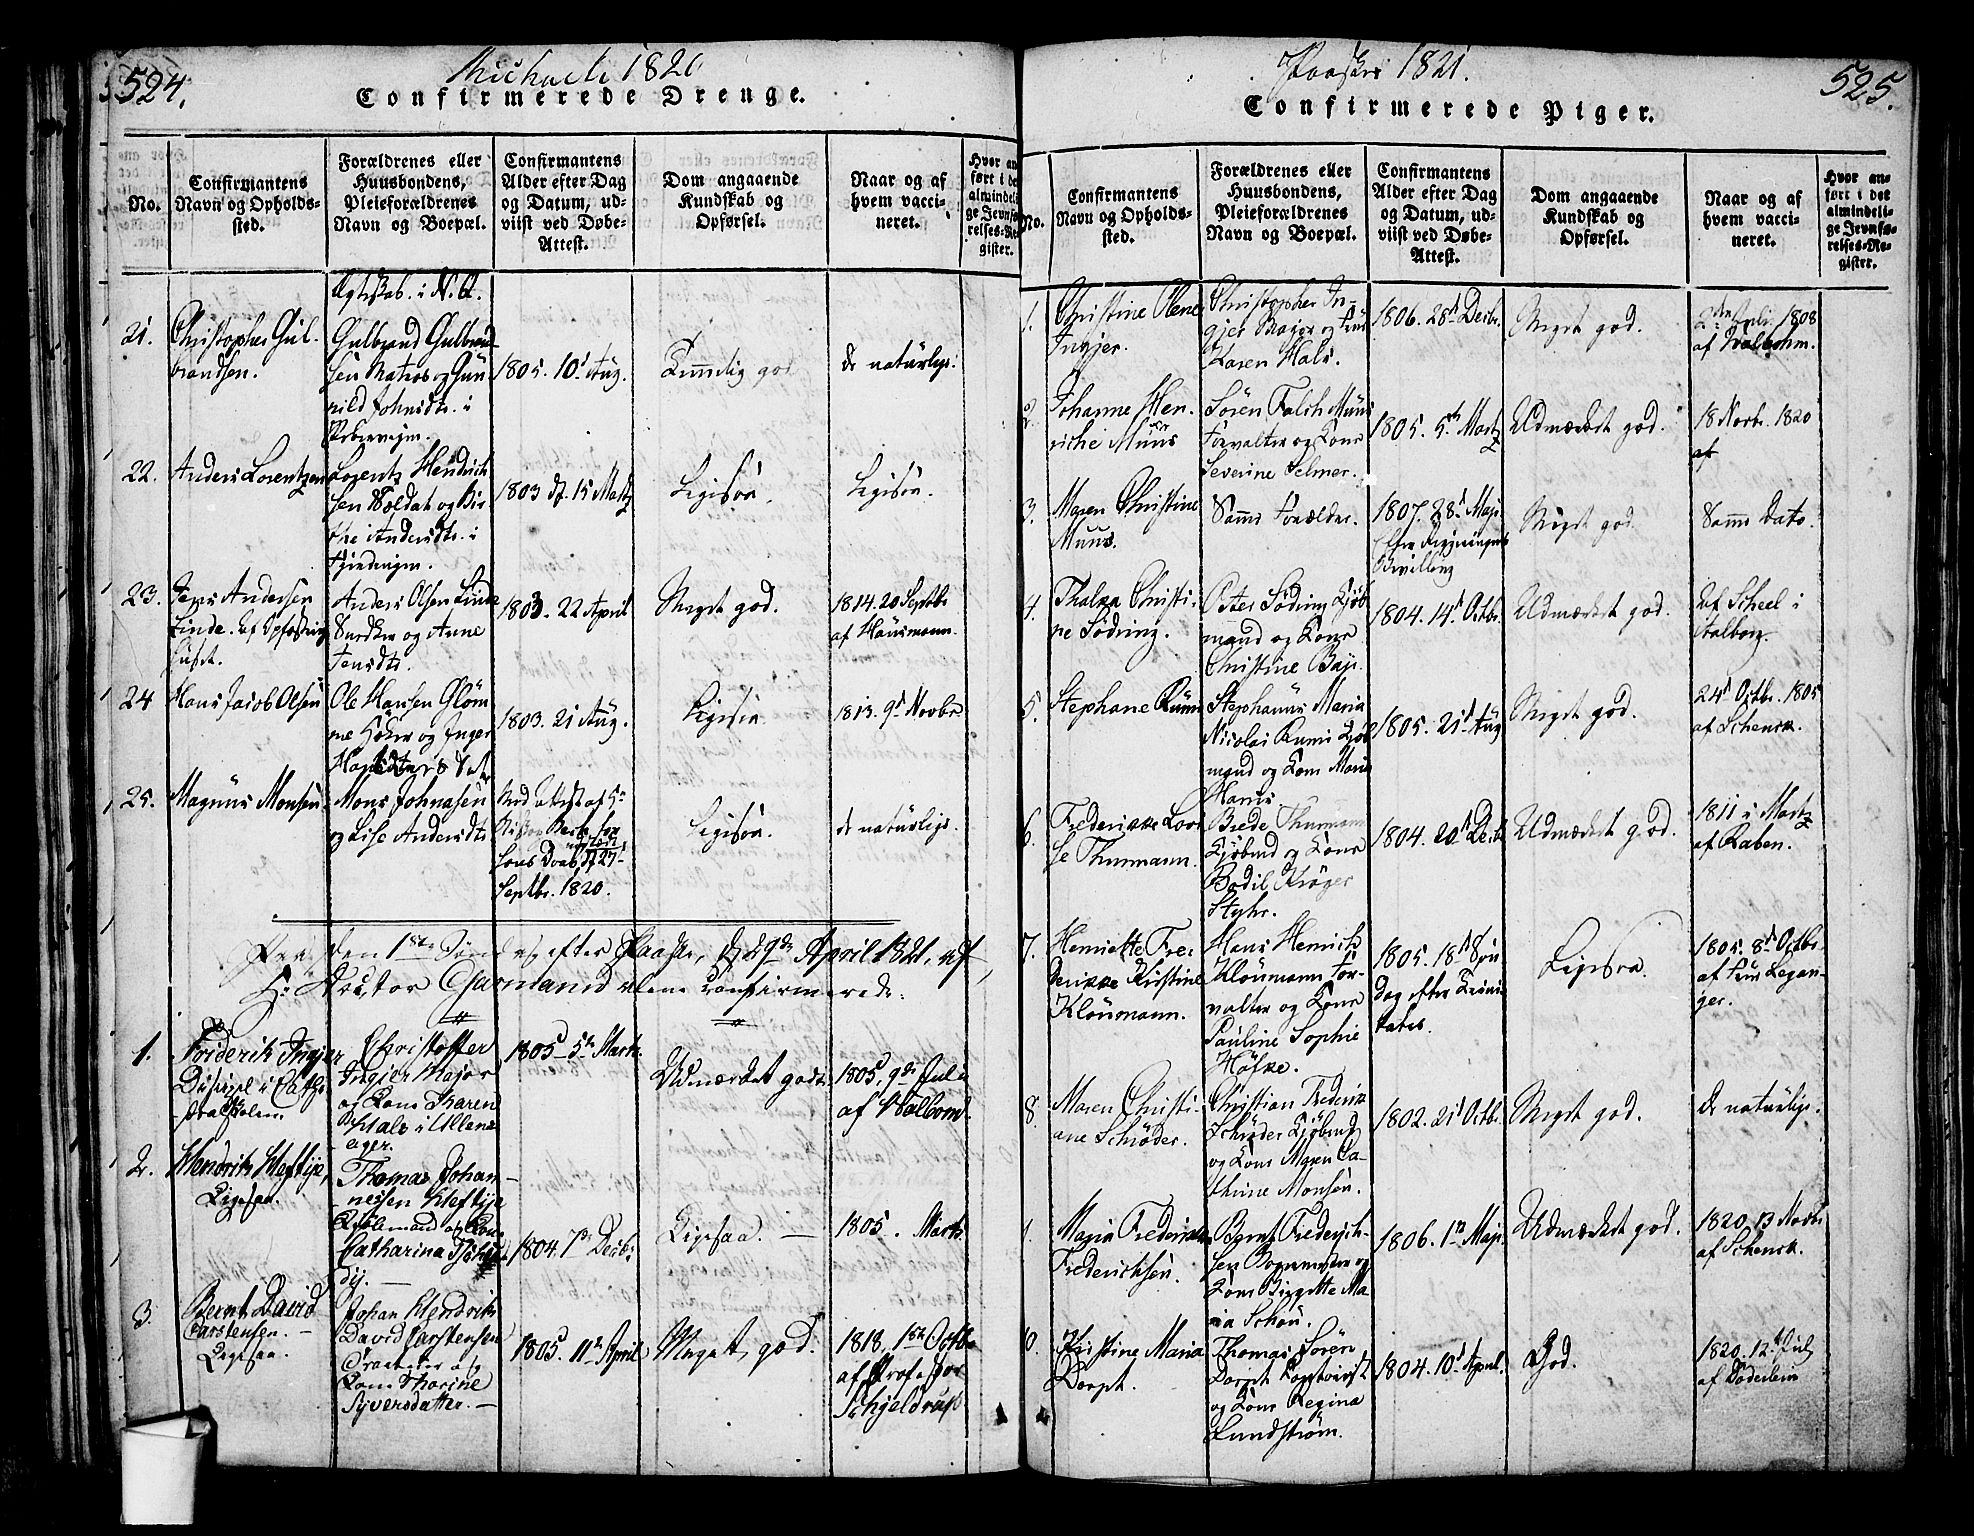 524.
Michaeli 1820
Confirmerede Drenge.
No.
Confirmantens
Navn og Opholds-
sted.
Forældrenes eller
Huusbondens,
Pleieforældrenes
Navn og Boepæl.
Confirmantens
Alder efter Dag
og Datum, ud-
viist ved Døbe-
Attest.
Dom angaaende
Kundskab og
Opførsel.
Naar og af
hvem vacci-
neret.
Hvor an-
ført i det
almindeli-
ge Jevnfø-
relses-Re-
gister.
i N. A.
21.
Christopher Gul-
brandsen.
Gulbrand Gulbrand-
sen Matros og Gun-
nild Johnsdtr. i
1805. 10d Aug.
Temmelig god
de naturlige.
22.
Anders Lorentzen
Lorentz Hendrich-
sen Soldat og Bir-
the Andersdtr. i
1803 d. 15 Martz
Ligesaa.
Ligesaa.
23.
Jens Andersen
Linde. Af Opfostrings
huset.
Anders Olsen Linde
Snedker og Anne
Jensdtr.
1803. 22 April
Meget god.
1814. 20 Septbr
af Hausmann.
24
Hans Jacob Olsen
Ole Hansen Glom-
me Høker og Inger
1803. 21 Aug.
Ligesaa
1813. 9d Novbr
25.
Magnus Monsen
Mons Johnasen
og Lise Andersdtr
Med Attest af Hr
Septbr. 1820.
Ligesaa.
de naturlige.
den 1ste Søndag efter Paaske, d. 29de April 1821, af
Hr Rector Garmand confirmerede.
1.
Friderik Ingier
Discipel i Cathe-
dralskolen.
Christoffer
Ingier Major
og Kone Karen
Hals i Ullens-
ager.
1805 5te Marti.
Udmærket god.
1805, 9de Julii
af Walbom.
2.
Hendrik Heftije,
Ligesaa.
Thomas Johan-
nessen Heftije
Kjøbmand og Kone
Catharina
1804. 7de Decbr
Ligesaa. —
1805. Marti.
3.
Bernt David
Carstensen. —
Ligesaa.
Johan Hendrik
David Carstensen
og
Kone Thorine
Syversdatter. —
1805. 11te April
Meget god.
1818, 1ste Octb.
af Professor
Schjeldrup
525.
Paaske 1821.
Confirmerede Piger.
No.
Confirmantens
Navn og Opholds-
sted.
Forældrenes eller
Huusbondens,
Pleieforældrenes
Navn og Boepæl.
Confirmantens
Alder efter Dag
og Datum, ud-
viist ved Døbe-
Attest.
Dom angaaende
Kundskab og
Opførsel.
Naar og af
hvem vacci-
neret.
Hvor an-
ført i det
almindeli-
ge Jevnfø-
relses-Re-
gister.
1.
Christine Olene
Ingjer.
Christopher In-
gjer Major og Fru
Karen Hals.
1806. 28d Decbr.
Meget god.
2den Juli 1808
af Walbohm.
2.
Johanne Hen-
riche Muus
Søren Falch Muus
Forvalter og Kone
Severine Selmer.
1805. 5te Martz
Udmærket god.
18 Novbr. 1820
af
3.
Maren Christine
Muus.
Samme Forældre.
1807. 28d Maji
efter Regjeringens
Bevilling
Meget god.
Samme Dato.
4.
Thalka Christi-
ne Södring.
Peter Södring Kjøb-
mand og Kone
Christine Baji.
1804. 14d Octbr.
Udmærket god.
Af Scheel i
Aalborg.
5.
Stephane Rumi
Stephanus Maria
Nicolai Rumi Kjøb-
mand og Kone Maria
Hans
1805. 21d Aug
Meget god.
24d Octbr. 1805
af Schenck.
6.
Frederikke Loui-
se Thurmann.
Brede Thurmann
Kjøbmd og Kone
Bodil Krøger
Styhr.
1804. 20d Decbr
Udmærket god.
1811 i Martz
af Raben.
7.
Henriette Fre-
derikke Kirstine
Kloumann.
Hans Henrich
Kloumann For-
valter og Kone
Pauline Sophie
Høfke.
1805. 18d Søn-
dag efter Trini-
tatis.
Ligesaa.
1805. 8d Octbr.
af
8.
Maren Christi-
ane Schrøder.
Christian Frederik
Schrøder Kjøbmd
og Kone Maren Ca-
thrine Monsen.
1802. 21d Octbr.
Meget god.
De naturlige.
Maria Frederikke
Frederichsen.
Bernt Frederich-
sen og
Kone Birgitte Ma-
ria Schou.
1806. 1ste Maji.
Udmærket god.
1820 13 Novbr
af Schenck.
Kirstine Maria
Dorpt.
Thomas Sören
Dorpt Contoirist
og Kone Regina
Lundstrøm.
1804. 10d April.
God.
1820. 12te Jul
af Döderlein